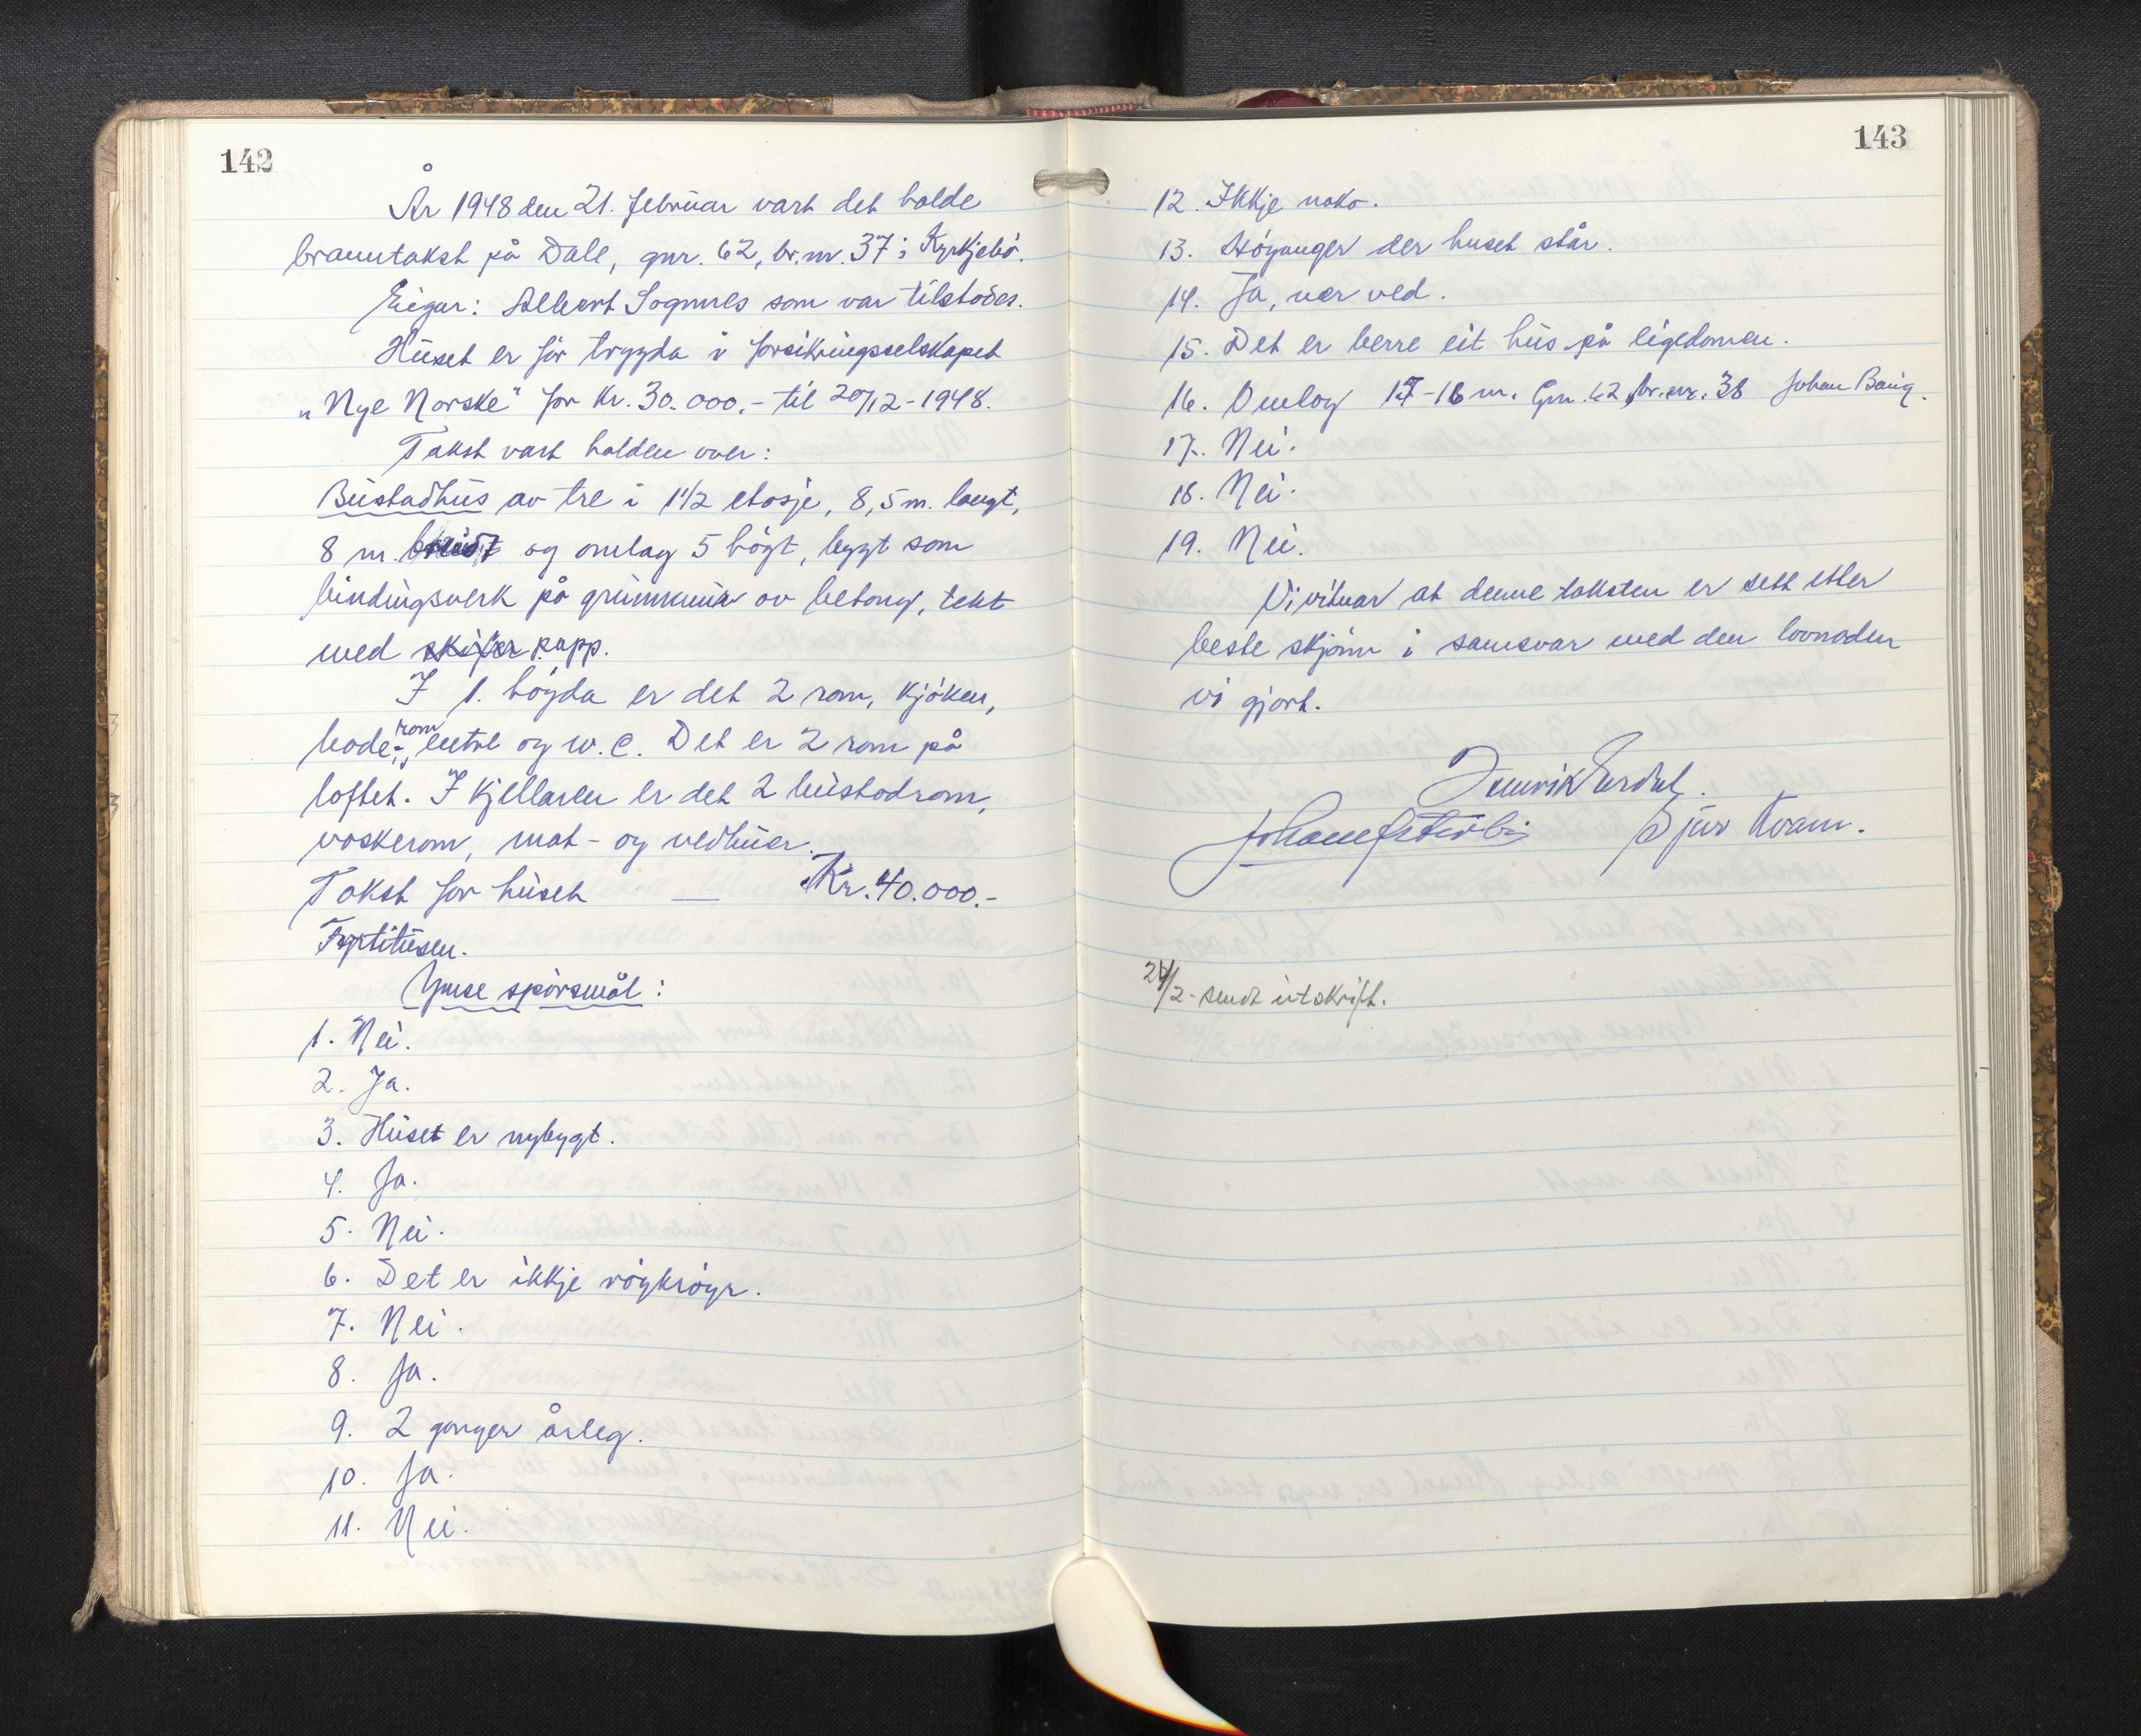 142
År 1948 den 21. februar vart det halde
branntakst på Dale, gnr. 62, br.nr. 37 i Kyrkjebö.
Eigar: Albert Sognnes som var tilstades.
Huset er för trygda i forsikringsselskapet
„Nye Norske" for kr. 30.000.- til 20/12-1948.
Takst vart halden over:
Bustadhus av tre i 1 1/2 etasje, 8,5 m. langt,
8 m. breidt og omlag 5 högt, bygt som
bindingsverk på grunnmur av betong, tekt
med skifer papp.
I 1. högda er det 2 rom, kjöken,
bade-rom, entre og w.c. Det er 2 rom på
loftet. I kjellaren er det 2 bustadrom,
vaskerom, mat- og vedbuer.
Takst for huset — Kr. 40.000.-
Fyrtitusen.
Ymse spörsmål:
1. Nei.
2. Ja.
3. Huset er nybygt.
4. Ja.
5. Nei.
6. Det er ikkje röykröyr.
7. Nei.
8. Ja.
9. 2 gonger årleg.
10. Ja.
11. Nei.
143
12. Ikkje noko.
13. Höyanger der huset står.
14. Ja, nær ved.
15. Det er berre eit hus på eigedomen.
16. Omlag 15-16 m. Gnr. 62, br.nr. 38 Johan
17. Nei.
18. Nei.
19. Nei.
Vi vitnar at denne taksten er sett etter
beste skjönn i samsvar med den lovnaden
vi gjort.
Henrik Erdal.
Johan Österbö Sjur Kvam.
24/2 - sendt utskrift.